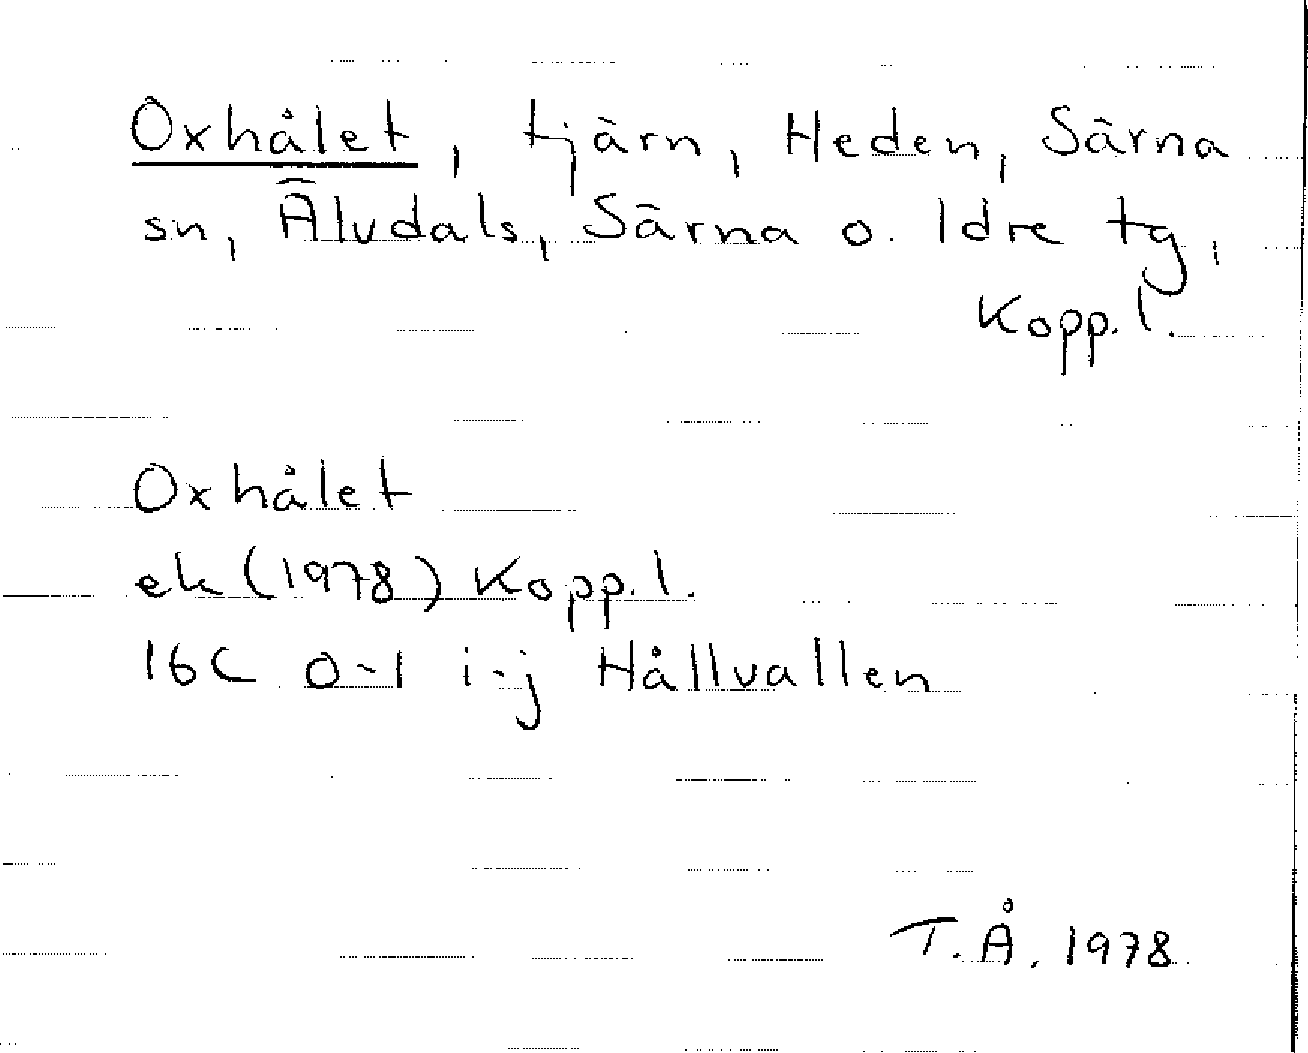 Oxhålet, tjärn, Heden, Särna
sn, Älvdals, Särna o. Idre tg,
Kopp. l.
Oxhålet
ek (1978) Kopp. l.
16C 0-1 i-j Hållvallen
T.Å. 1978